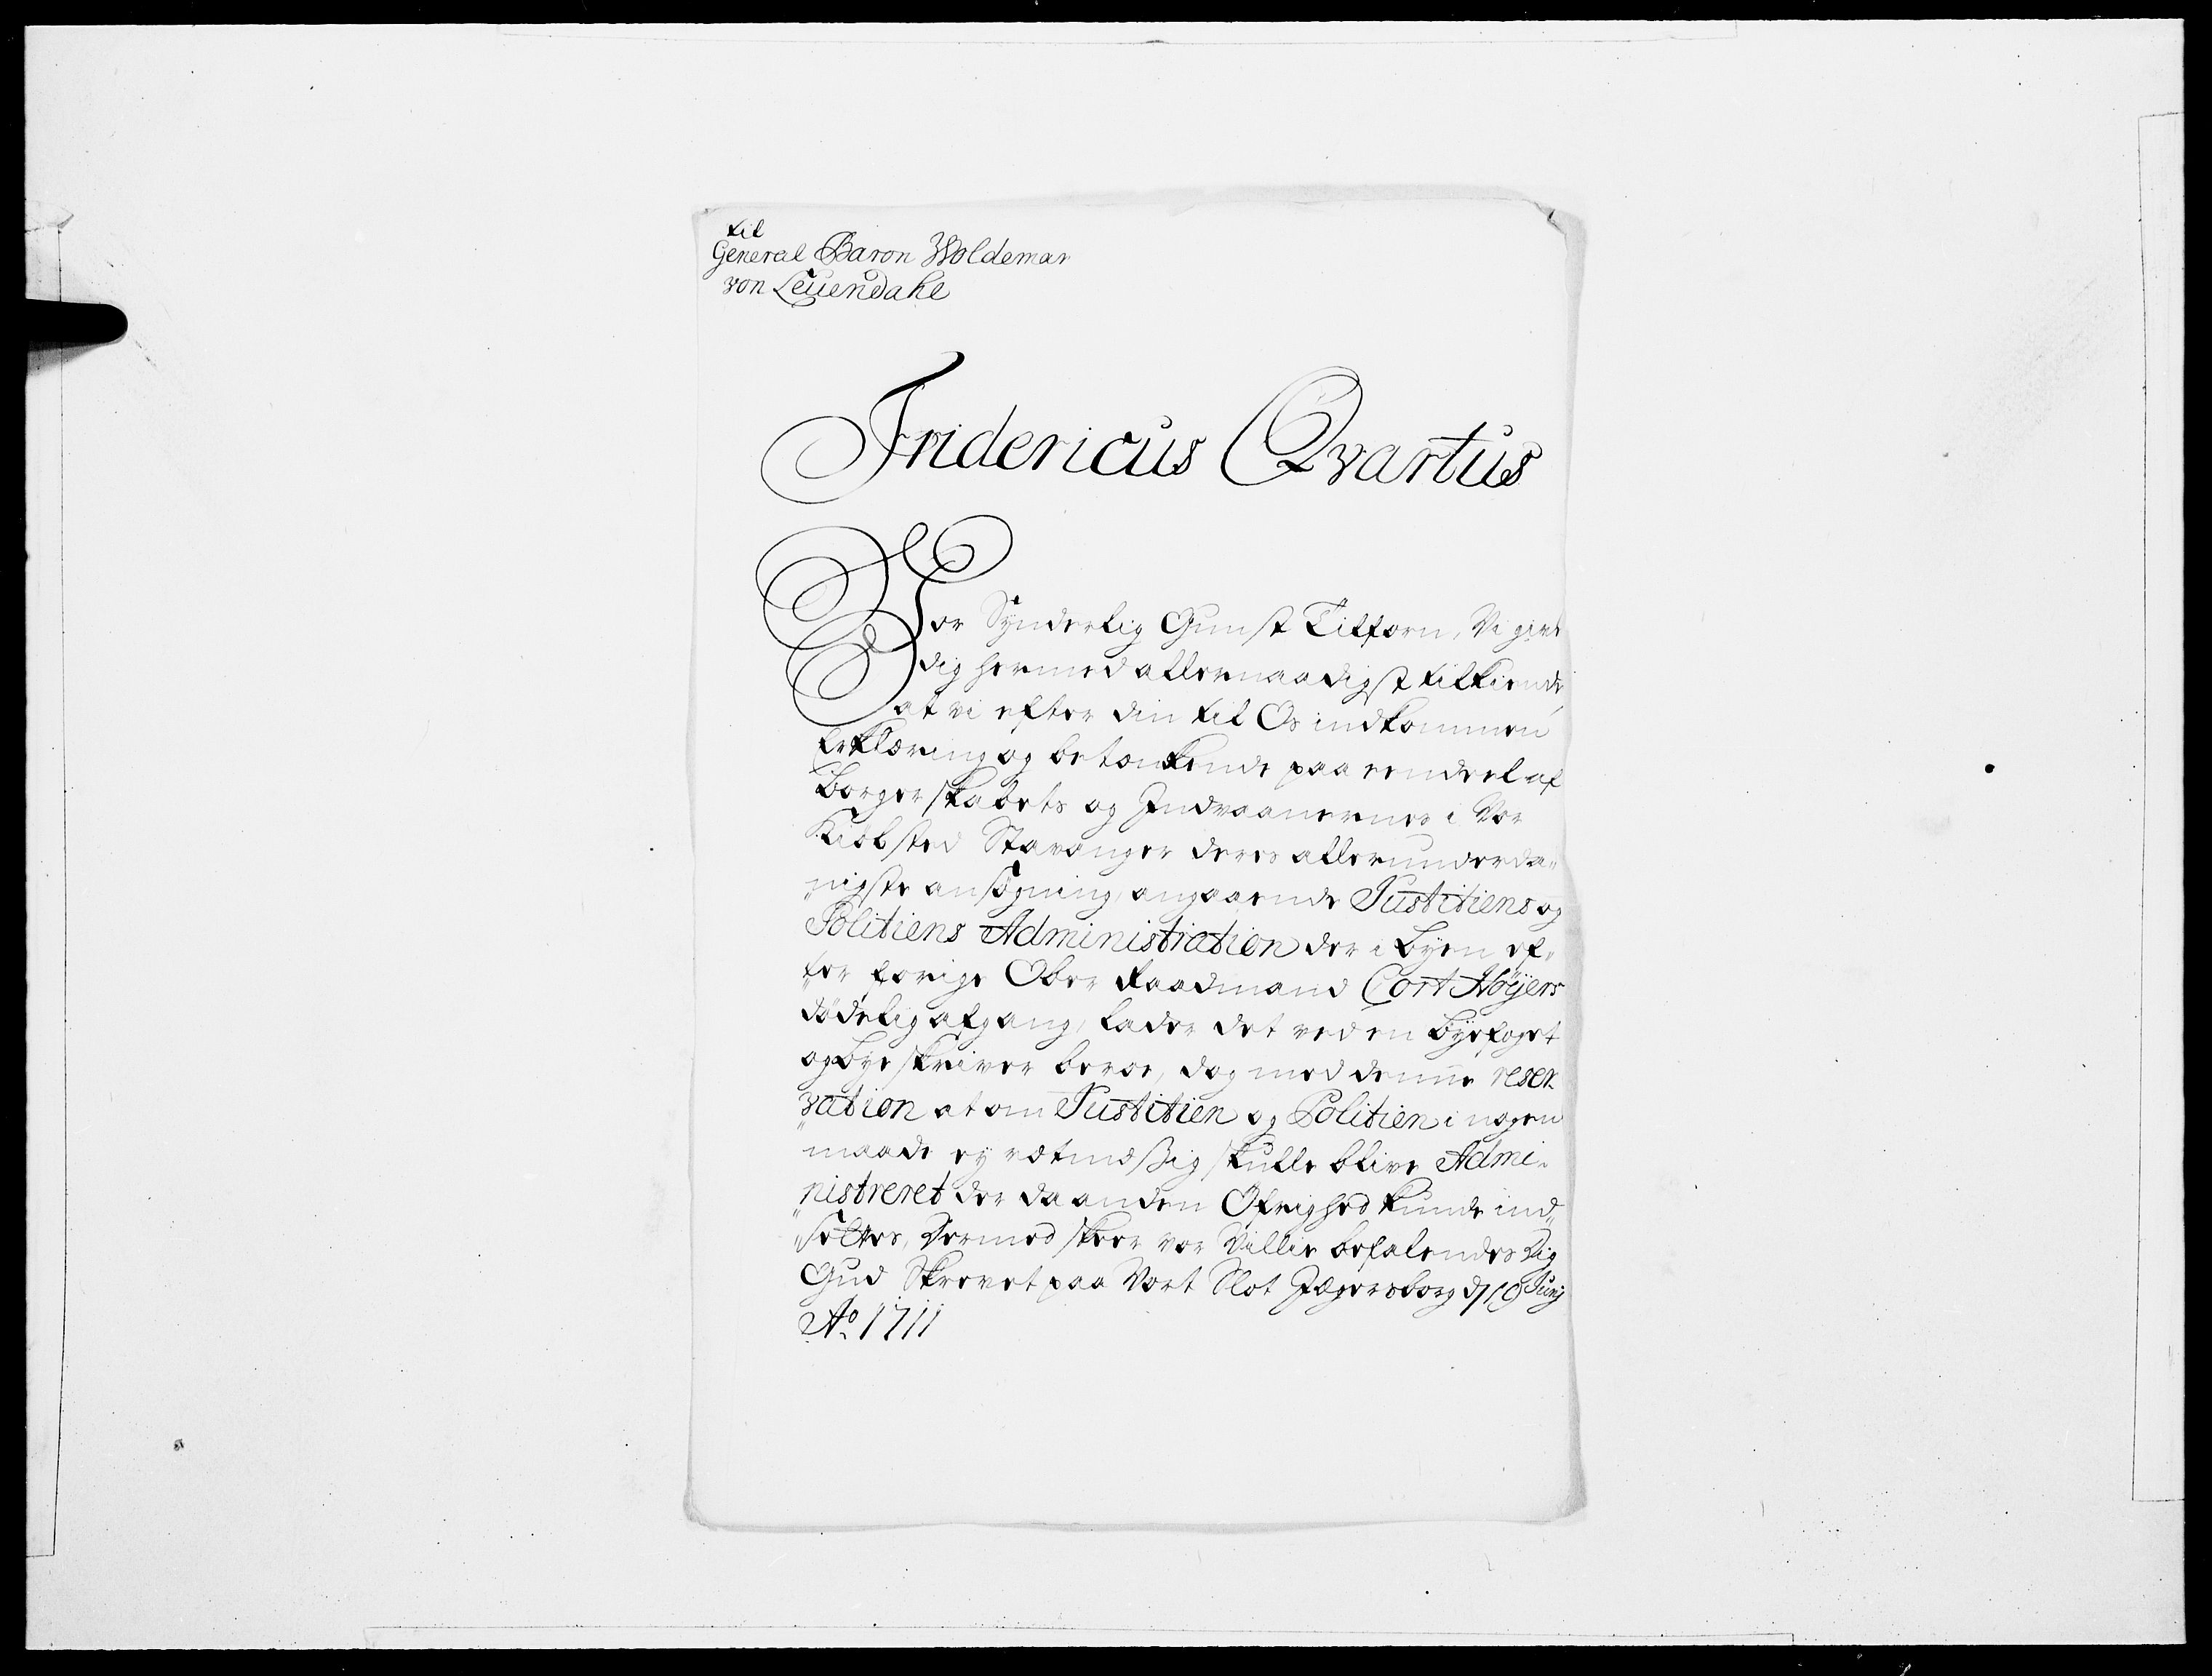 til
General Baron Woldemar
von Leüendahl
Fridericus Qvartus
Vor Synderlig Gunst Tilforn, Vi give
dig hermed allernaadigst tilkiende,
at vi efter din til Os indkommen
Erklæring og betænkende paa eendeel af
Borgerskabets og Indvaanernes i Vor
Kiøbsted Stavanger deres allerunderda„
„nigste ansøgning, angaaende Justitiens og
Politiens Administration der i Byen ef„
„ter forige Ober Raadmand Cort Høyers
dødelig afgang, lader det ved en Byefoget
og Byeskriver beroe, dog med denne reser„
„vation at om Justitien og Politien i nogen
maade ey rætmæßig skulle blive Admi„
nistreret der da anden Øfrighed kunde ind„
„sættes, Dermed skeer vor Villie befalendes Dig
Gud Skrevet paa Vort Slot Jægersborg d/ Junij
Ao. 1711